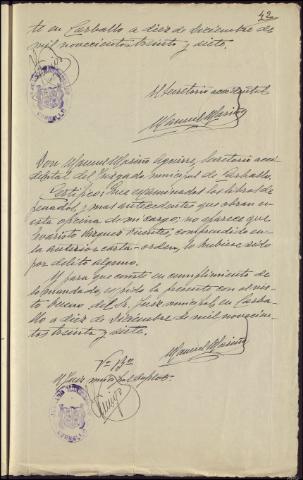 42
te en Carballo a diez de Diciembre de
mil novecientos treinta y siete.
El Secretario accidental
Manuel Mariño
Don Manuel Mariño Aguirre, Secretario acci-
dental del Juzgado municipal de Carballo.
Certifico: Que examinados los libros de
penados, y mas antecedentes que obran en
esta oficina de mi cargo; no aparece que
Evaristo Vazquez Fuentes, comprendido en
la anterior carta-orden, lo hubiese sido
por delito alguno.
Y para que conste en cumplimiento de
lo mandado, expido la presente con el vis-
to bueno del Sr. Juez municipal en Carba-
llo a diez de Diciembre de mil novecien-
tos treinta y siete.
Vº Bº
El Juez municipal
Manuel Mariño